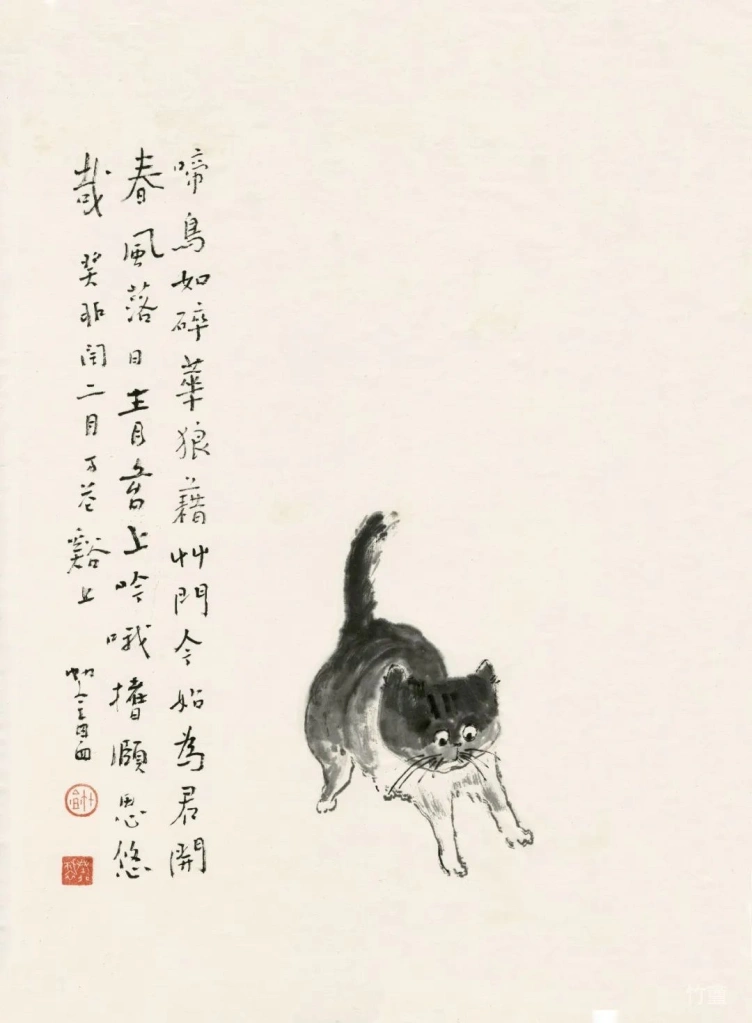 啼鳥如碎華狼藉艸門今始為君開
春風落日青苔上吟哦搘頤思悠
哉 癸卯閏二月万苍谿上
竹